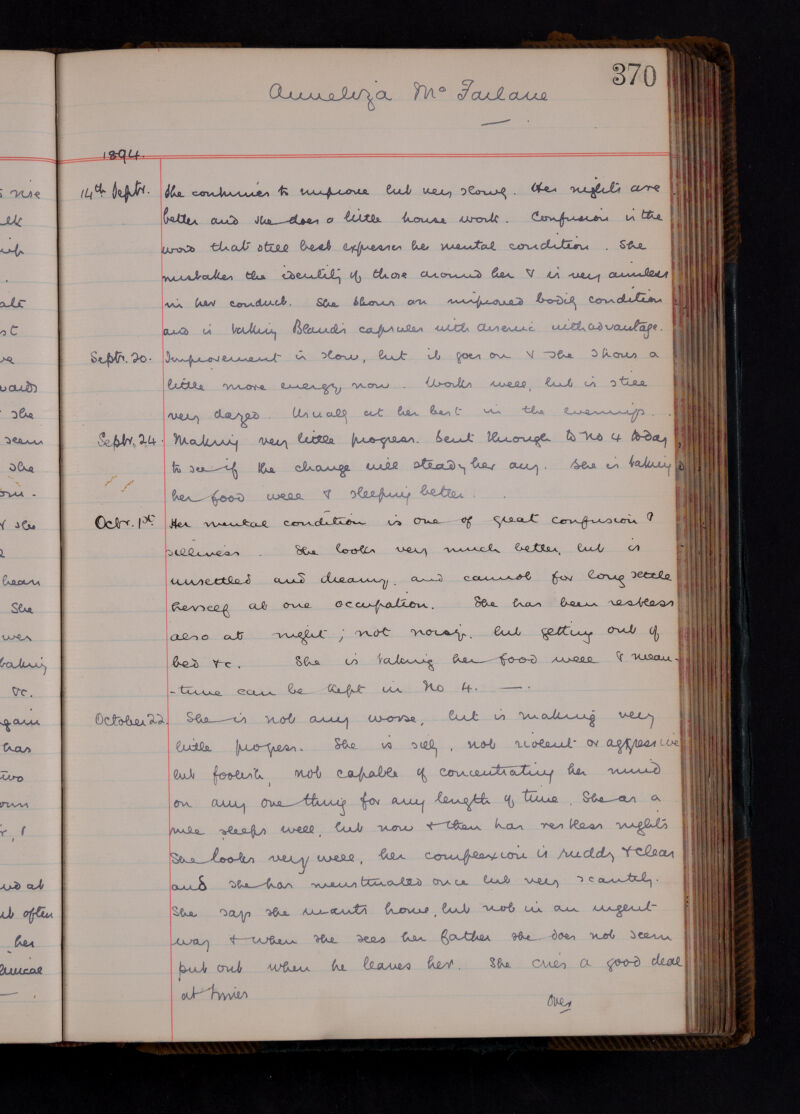 370
Anneliza Mc Farlane
1894.
14th Septr. She continues to improve but very slowly. Her nights are
better and she does a little house work. Confusion is the
word that still best expresses her mental condition. She
mistakes the identity of those around her & is very aimless
in her conduct. She shows an improved bodily condition
and is taking Blaud's capsules with arsenic with advantage.
Septr. 20. Improvement is slow, but it goes on & she shows a
little more energy now. Works well, but is still
very dazed. Usually at her best in the evenings.
Septr. 24. Making very little progress. Sent through to No 4 today
to see if the change will steady her any. She is taking
her food well & sleeping better.
Octr. 1st. Her mental condition is one of great confusion &
silliness. She looks very much better, but is
unsettled and dreamy. and cannot for long settle
herself at one occupation. She has been restless
also at night; not noisy. but getting out of
bed &c. She is taking her food well & mean-
-time can be kept in No 4. —.
October 22 She is not any worse, but is making very
little progress. She is silly, not violent or aggressive
but foolish, not capable of concentrating her mind
on any one thing for any length of time. She as a
rule sleeps well, but now & then has restless nights
She looks very well, her complexion is ruddy & clear
and she has menstruated once but very scantily.
She says she wants home, but not in an urgent
way & when she sees her father she does not seem
put out when he leaves her. She cries a good deal
at times
Over